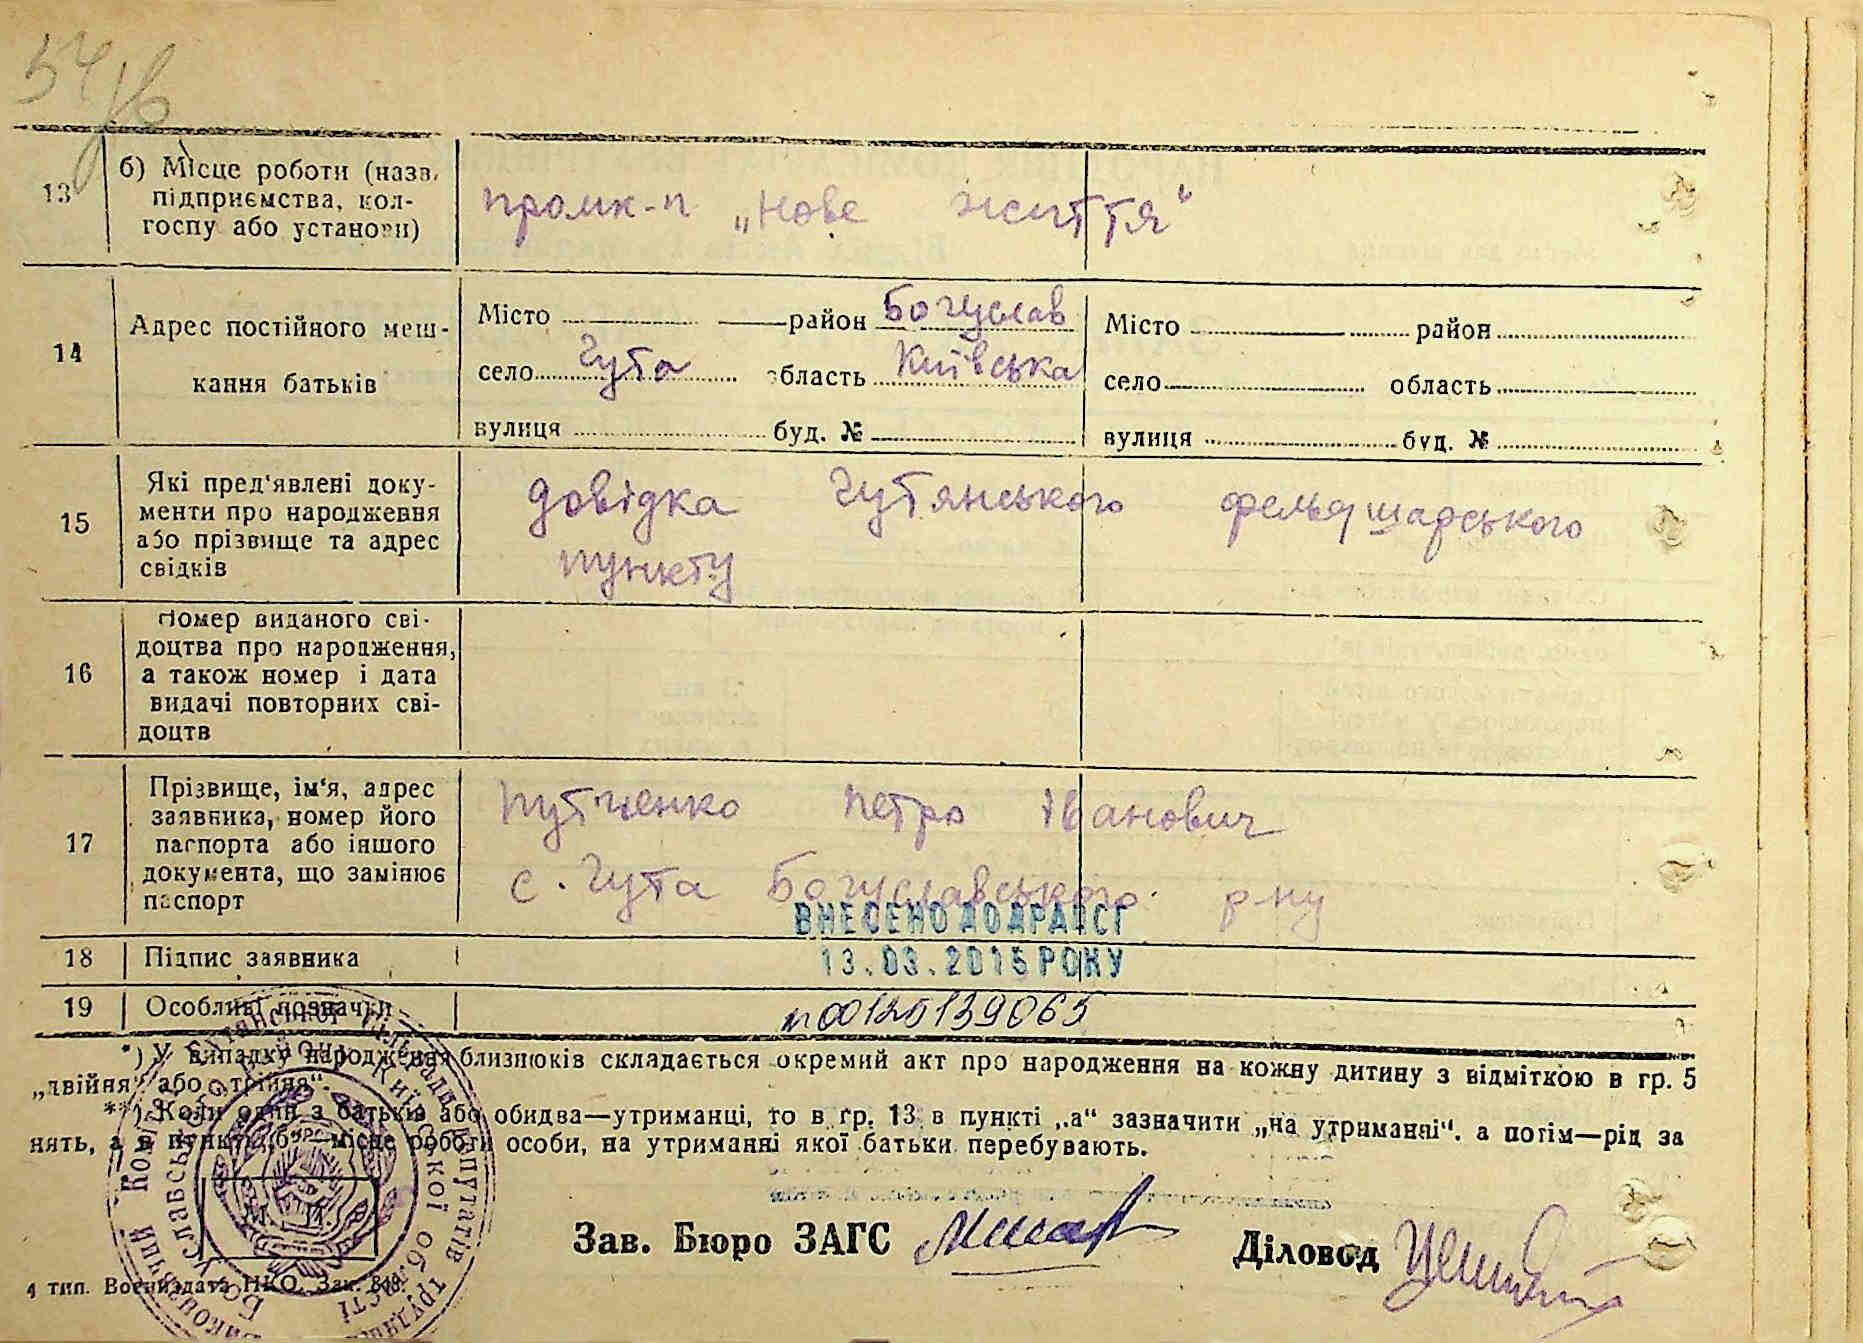 54
13 б) Місце роботи (назв. підприємства, колгоспу або установи) промк-п „Нове життя“
14 Адрес постійного мешкання батьків
Місто район Богуслав Місто район
село Гута область Київська село область
вулиця буд. № вулиця буд. №
15 Які пред'явлені документи про народження або прізвище та адрес свідків
довідка Гутянського фельдшарського
пункту
16 Номер виданого свідоцтва про народження, а також номер і дата видачі повторних свідоцтв
17 Прізвище, ім'я, адрес заявника, номер його паспорта або іншого документа, що замінює паспорт
Петро Іванович
с. Гута Богуславського р-ну
ВНЕСЕНО ДО ДРАЦСГ
13.03.2015 РОКУ
18 Підпис заявника
19 Особливі позначки
00120139065
*) У випадку народження близнюків складається окремий акт про народження на кожну дитину з відміткою в гр. 5
„двійня“ або „трійня“.
**) Коли один з батьків або обидва—утриманці, то в гр. 13 в пункті „а“ зазначити „на утриманні“. а потім—рід за
нять, а в пункті „б“—місце роботи особи, на утриманні якої батьки перебувають.
М. П.
Зав. Бюро ЗАГС
Діловод
4 тип. Воениздата НКО. Зак. 848.